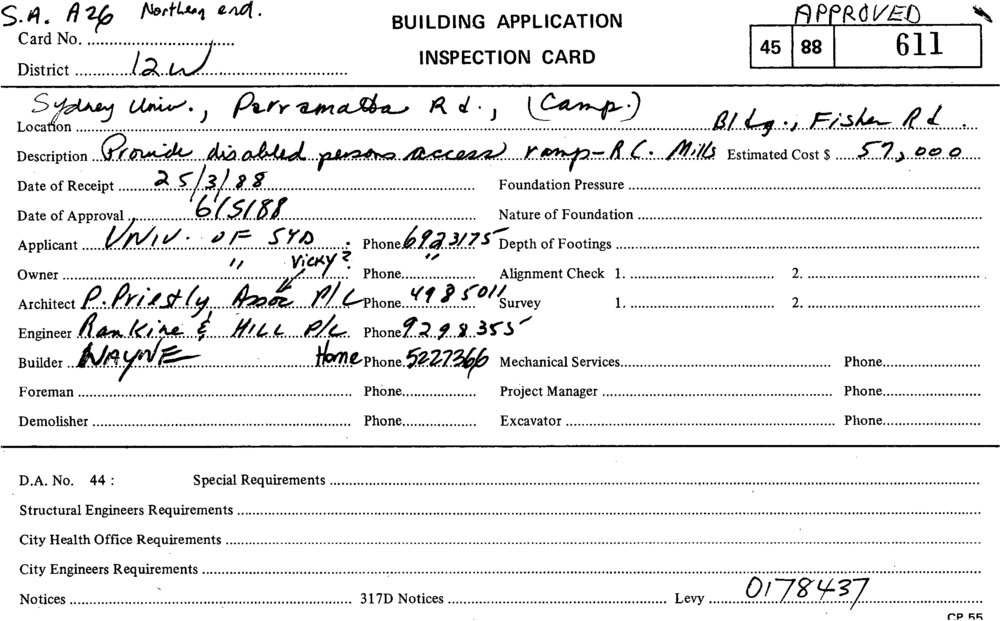 S.A. A26 Northern end.
BUILDING APPLICATION
INSPECTION CARD
APPROVED
45 88 611
Card No.
District 12W
Location Sydney Univ., Parramatta Rd., (Camp.)
Bldg., Fisher Rd.
Description Provide disabled persons access ramp - R.C. Mills Estimated Cost $ 57,000
Date of Receipt 25/3/88 Foundation Pressure
Date of Approval 6/5/88 Nature of Foundation
Applicant UNIV. OF SYD Phone 6923175 Depth of Footings
Owner " Vicky? Phone " Alignment Check 1. 2.
Architect P. Priestly Assoc P/L Phone 4985011 Survey 1. 2.
Engineer Rankine & HILL P/L Phone 9298355
Builder WAYNE Home Phone 5227366 Mechanical Services Phone
Foreman Phone Project Manager Phone
Demolisher Phone Excavator Phone
D.A. No. 44 : Special Requirements
Structural Engineers Requirements
City Health Office Requirements
City Engineers Requirements
Notices 317D Notices Levy 0178437
CP 55